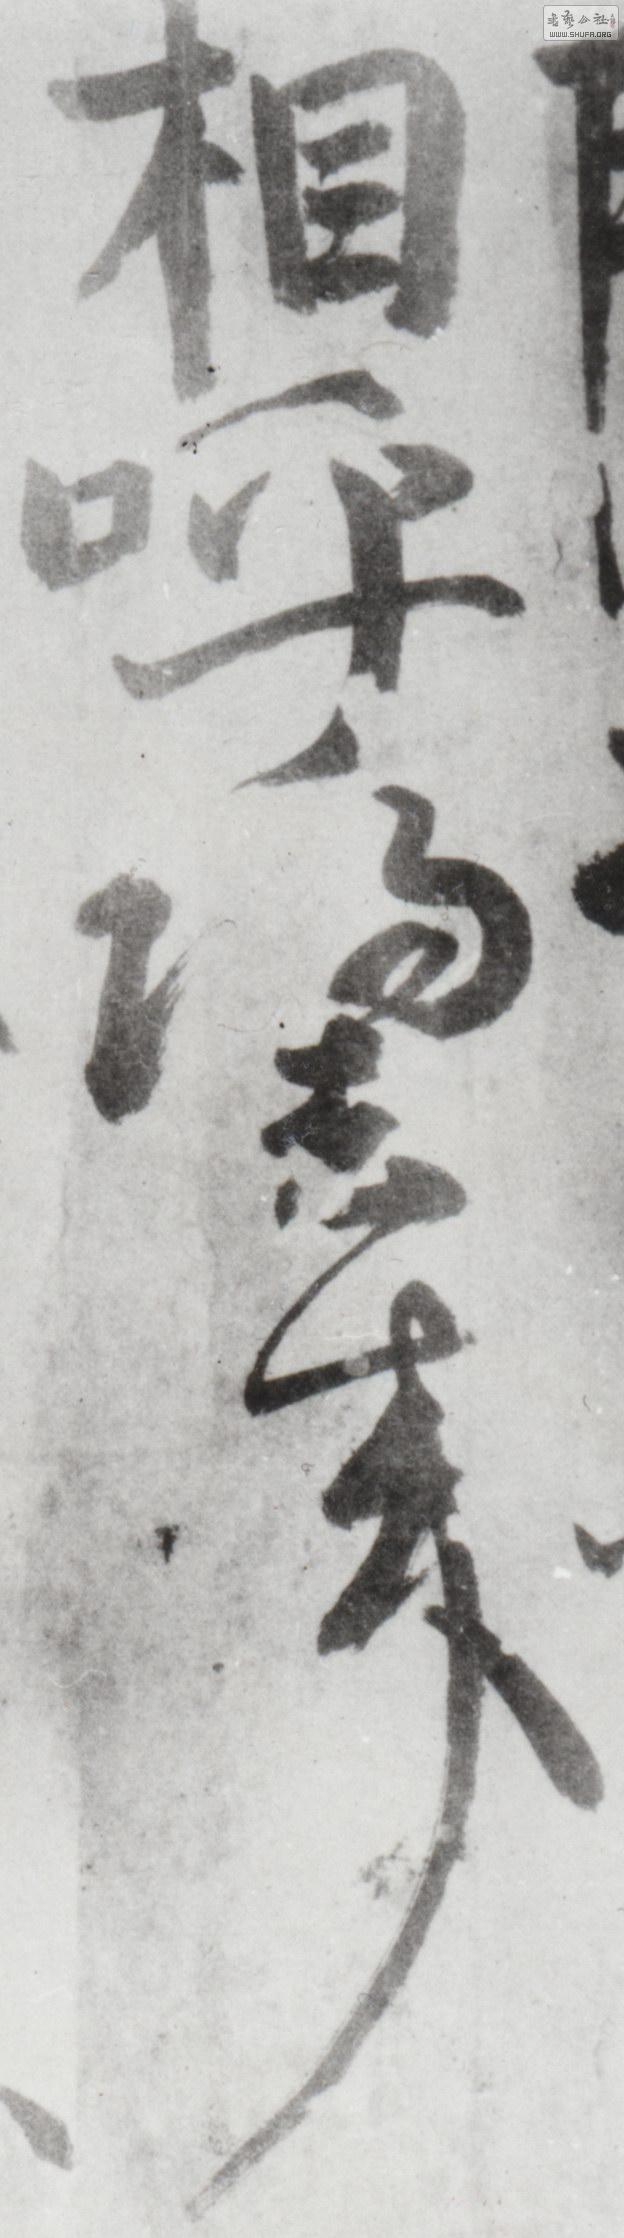 相呼歸去来
書藝公社
WWW.SHUFA.ORG